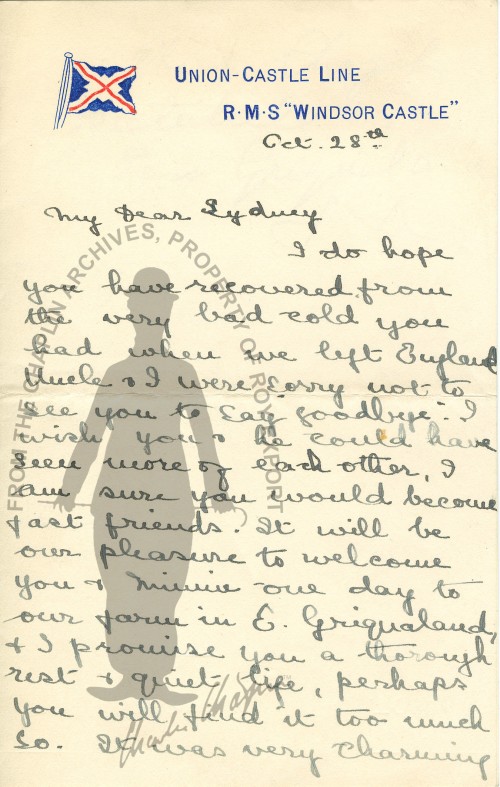 UNION-CASTLE LINE
R·M·S "WINDSOR CASTLE"
Oct. 28th
My Dear Sydney
I do hope
you have recovered from
the very bad cold you
had when we left England
Uncle & I were sorry not to
see you to say goodbye. I
wish you & he could have
seen more of each other, I
am sure you would become
fast friends. It will be
our pleasure to welcome
you & Minnie one day to
our farm in E. Griqualand,
& I promise you a thorough
rest & quiet life, perhaps
you will find it too much
so. It was very charming
FROM THE CHAPLIN ARCHIVES, PROPERTY OF ROY EXPORT
Charlie Chaplin